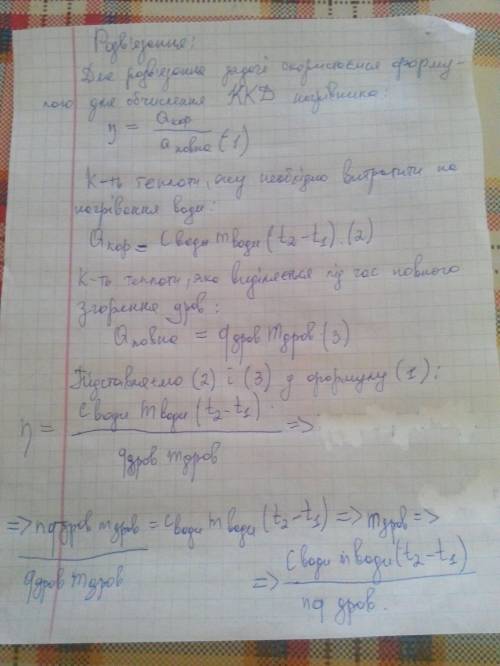 Розв'язання:
Для розв'язання задачі скористаємося форму-
лою для обчислення ККД нагрівника:
η = Qкор / Qповна (1)
К-ть теплоти, яку необхідно витратити на
нагрівання води:
Qкор = Cводи mводи (t2 - t1). (2)
К-ть теплоти, яка виділяється під час повного
згорання дров:
Qповна = qдров mдров (3)
Підставляємо (2) і (3) у формулу (1):
η = Cводи mводи (t2 - t1) / qдров mдров =>
=> nqдров mдров / qдров mдров = Cводи mводи (t2 - t1) => mдров =>
=> Cводи mводи (t2 - t1) / nq дров.